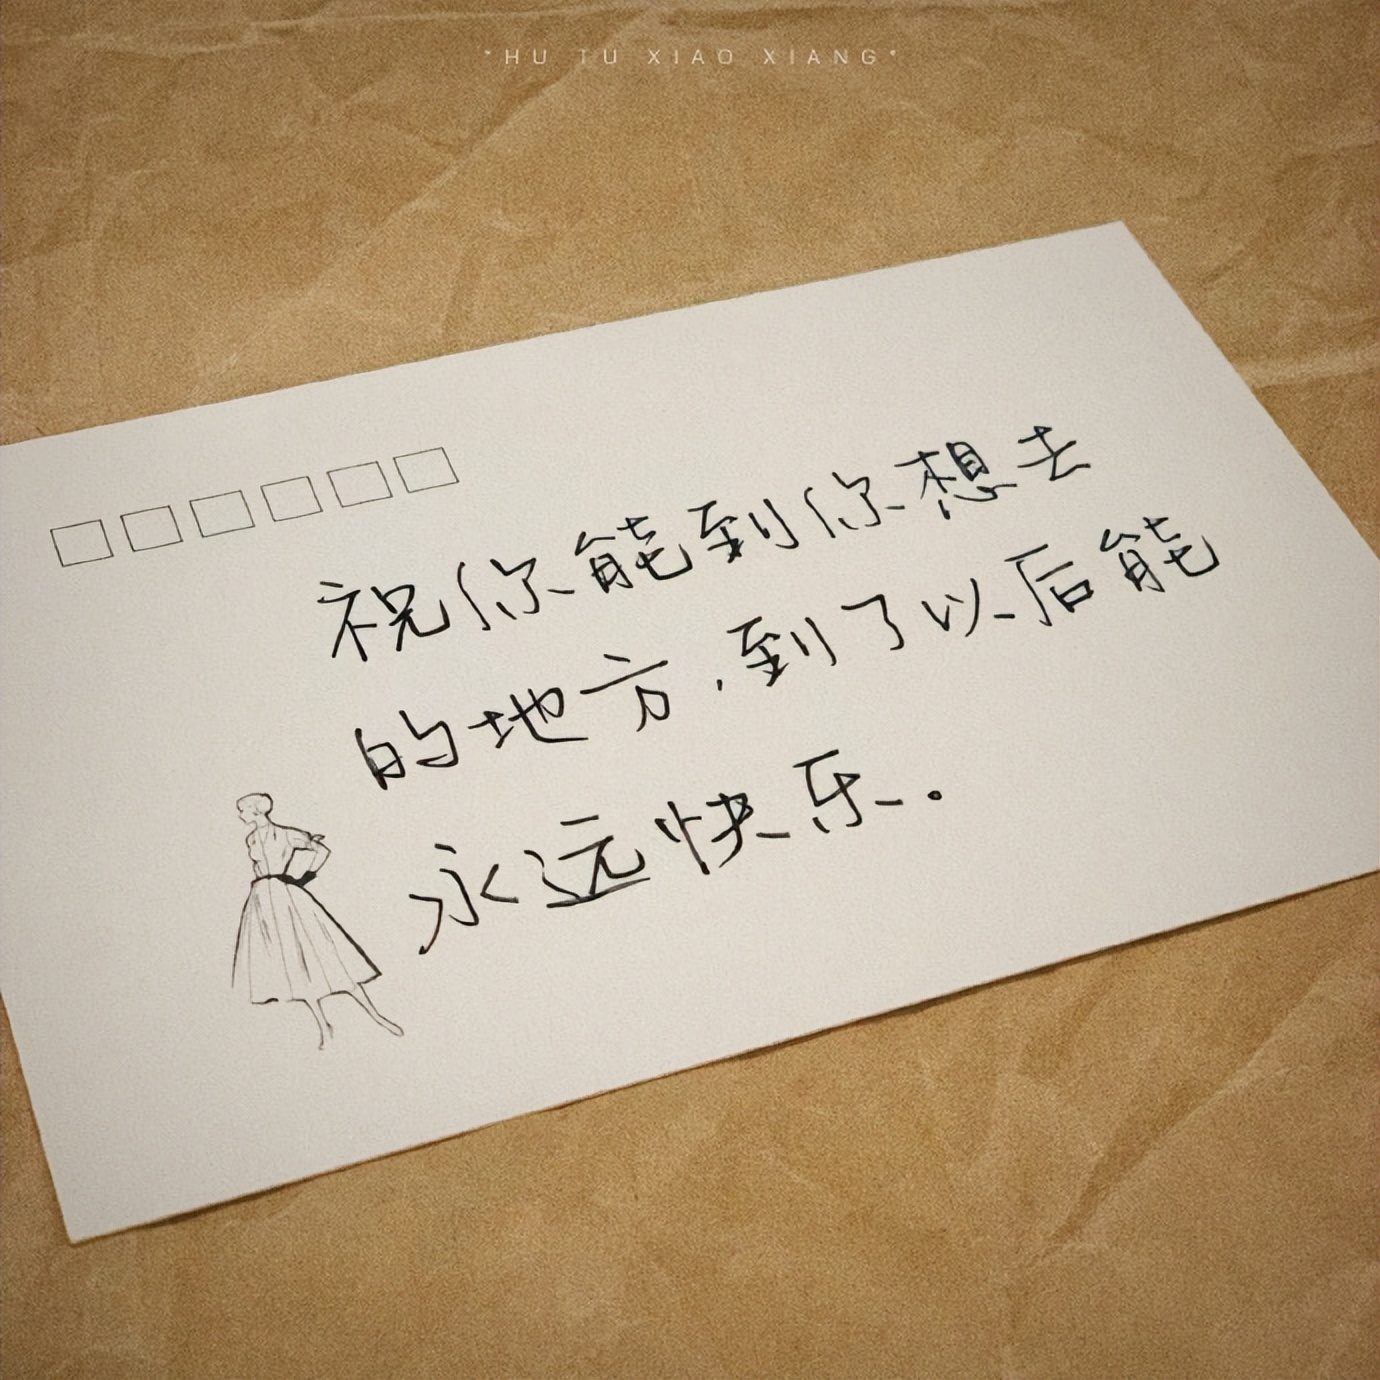 "HU TU XIAO XIANG"
祝你能到你想去
的地方,到了以后能
永远快乐.